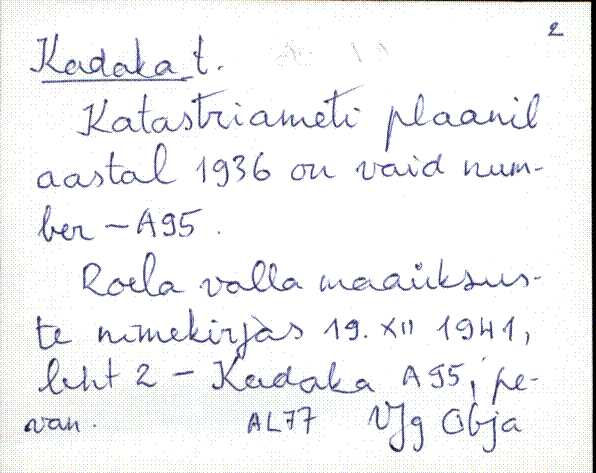 2
Kadaka t.
Katastriameti plaanil
aastal 1936 on vaid num-
ber – A95.
Roela valla maaüksus-
te nimekirjas 19. XII 1941,
leht 2 – Kadaka A95, pe-
van. AL77 VJg Obja